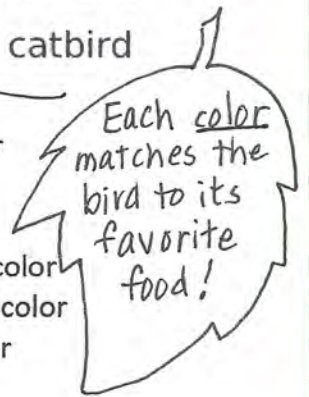 catbird
Each color
matches the
bird to its
favorite
food!
color
color